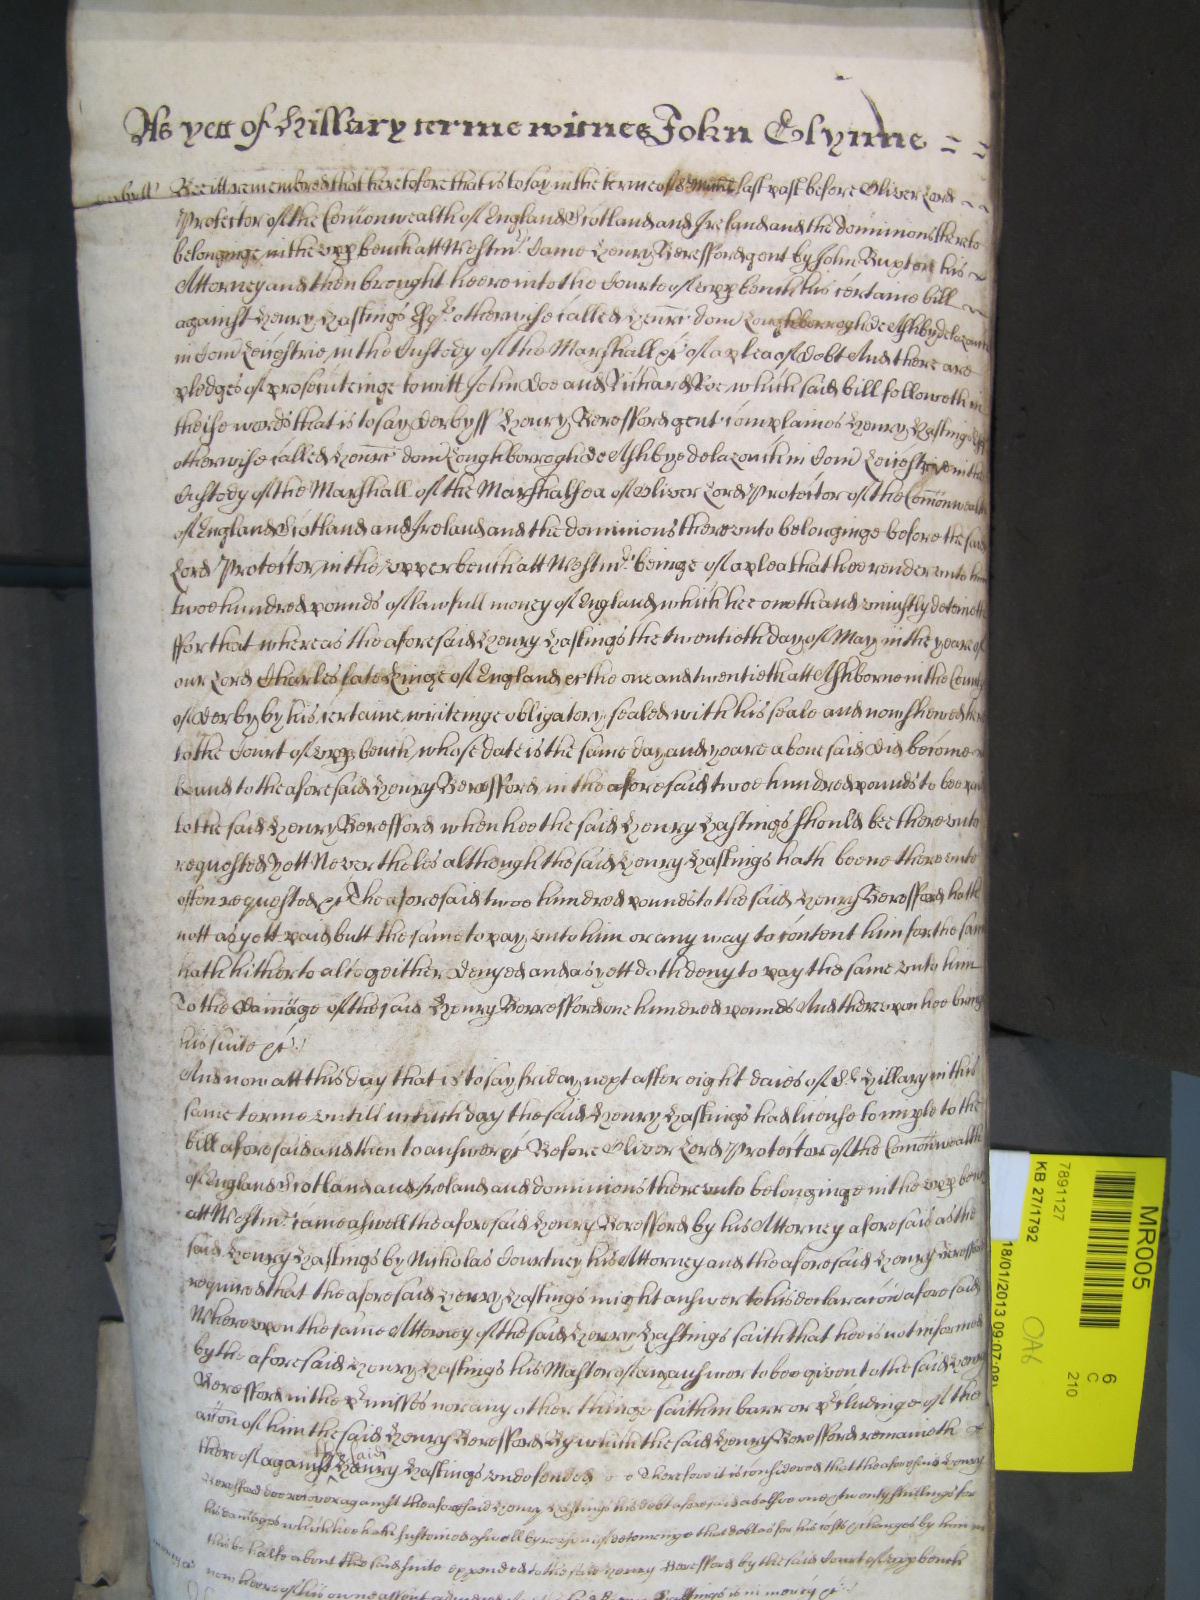 As yett of Hillary terme witnes John Glynne = =
Bee itt remembred that heretofore that is to say in the terme of last past before Oliver Lord
Protector of the Comonwealth of England Scotland and Ireland and the dominions thereto
belonginge in the upp bench att Westmr. Came Henry Beresford gent by John Buxton his
Attorney and then brought heere into the Courte of upp bench his certaine bill
against Henry Hastings Esqr. otherwise called Henrie dom Loughborrogh de Ashby delazouch
in Com Leicestrie in the Custody of the Marshall &c of a plea of debt And there are
pledges of prosecuteinge to witt John Doe and Richard Roe which said bill followeth in
theise words that is to say Derbyss Henry Beresford gent complaines Henry Hastings Esq
otherwise called Henrie dom Loughborrogh de Ashbye delazouch in Com Leicestrie in the
Custody of the Marshall of the Marshalsea of Oliver Lord Protector of the Comonwealth
of England Scotland and Ireland and the dominions thereunto belonginge before the said
Lord Protector in the upper bench att Westmr. beinge of a plea that hee render unto him
twoe hundred pounds of lawfull money of England which hee oweth and uniustly deteineth
ffor that whereas the aforesaid Henry Hastings the twentieth day of May in the yeare of
our Lord Charles late Kinge of England &c the one and twentieth att Ashborne in the County
of Derby by his certaine writeinge obligatory sealed with his seale and now shewed here
to the Court of upp bench whose date is the same day and yeare abovesaid did become
bound to the aforesaid Henry Beresford in the aforesaid twoe hundred pounds to bee paid
to the said Henry Beresford when hee the said Henry Hastings should bee thereunto
requested Yett Nevertheles although the said Henry Hastings hath beene thereunto
often requested &c The aforesaid twoe hundred pounds to the said Henry Beresford hath
nott as yett paid butt the same to pay unto him or any way to content him for the same
hath hitherto altogeither denyed and as yett doth deny to pay the same unto him
To the damage of the said Henry Berresford one hundred pounds And thereupon hee brings
his suite &c
And now att this day that is to say friday next after eight daies of St. Hillary in this
same terme untill which day the said Henry Hastings had license to imple to the
bill aforesaid and then to answer &c Before Oliver Lord Protector of the Comonwealth
of England Scotland and Ireland and dominions thereunto belonginge in the upp bench
att Westmr. came aswell the aforesaid Henry Beresford by his Attorney aforesaid as the
said Henry Hastings by Nicholas Courtney his Attorney and the aforesaid Henry Beresford
required that the aforesaid Henry Hastings might answer to his declaracon aforesaid
Whereupon the same Attorney of the said Henry Hastings saith that hee is not informed
by the aforesaid Henry Hastings his Master of an answer to bee given to the said Henry
Beresford in the p'misses nor any other thinge saith in barr or p'cludinge of the
accon of him the said Henry Beresford By which the said Henry Beresford remaineth
thereof against the said Henry Hastings undefended Therefore it is considered that the aforesaid Henry
Beresford doe recover against the aforesaid Henry Hastings his debt aforesaid as alsoe one & twenty shillings for
his damages which hee hath susteined aswell by reason of deteineinge that debt as for his costs & charges by him
this behalfe about the said suite expended to the said Henry Beresford by the said Court of upp bench
now heere of his owne assent Hastings is in mercy &c
MR005
6
C
210
7891127
KB 27/1792
18/01/2013 09:07:08
OA6